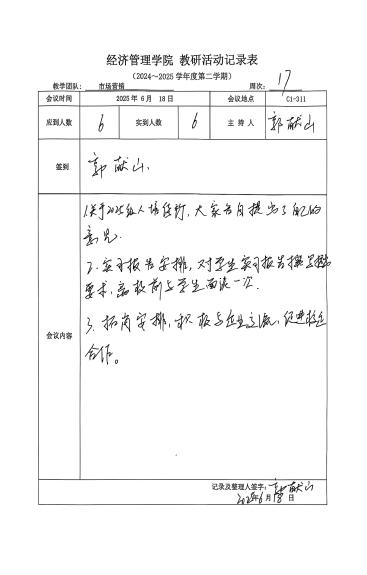 经济管理学院 教研活动记录表
（2024～2025 学年度第二学期）
教学团队： 市场营销 周次： 17
会议时间 2025 年 6 月 18 日 会议地点 C1-311
应到人数 6 实到人数 6 主 持 人 郭献山
签到 郭献山.
会议内容
1.关于2025级人培修订，大家各自提出了自己的
意见.
2.实习报告安排，对学生实习报告撰写提出
要求，离校前与学生面谈一次.
3.拓岗安排，积极与企业交流，促进校企
合作。
记录及整理人签字：郭献山
2025年6月18日